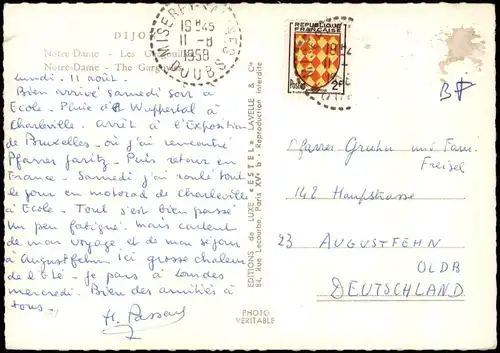 DIJO
Notre-Dame - Les Gargouilles
Notre-Dame - The Gargo
MISEREY
18H45
11-8
1958
DOUBS
REPUBLIQUE
FRANÇAISE
Postes
2F
Lundi. 11 août.
Bien arrivé samedi soir à
Ecole. Pluie d Wuppertal à
Charleville. Arrêt à l'Exposition
de Bruxelles. où j'ai rencontré
Pfarrer Jaritz. Puis retour en
France. Samedi j'ai roulé tout
le jour en motorad de Charleville
à Ecole. Tout s'est bien passé
Un peu fatigué. mais content
de mon voyage et de mon séjour
à Augustfehn. Ici grosse chaleur
de l'été. Je pars à Lourdes
mercredi. Bien des amitiés à
tous.
H. Passary
EDITIONS de LUXE "ESTEL" LAVELLE & Cie
84, Rue Lecourbe, Paris XVe b - Reproduction interdite
PHOTO
VÉRITABLE
Pfarrer Gruhn und Fam.
Freisel
142 Hauptstrasse
23 AUGUSTFEHN
OLDB
DEUTSCHLAND